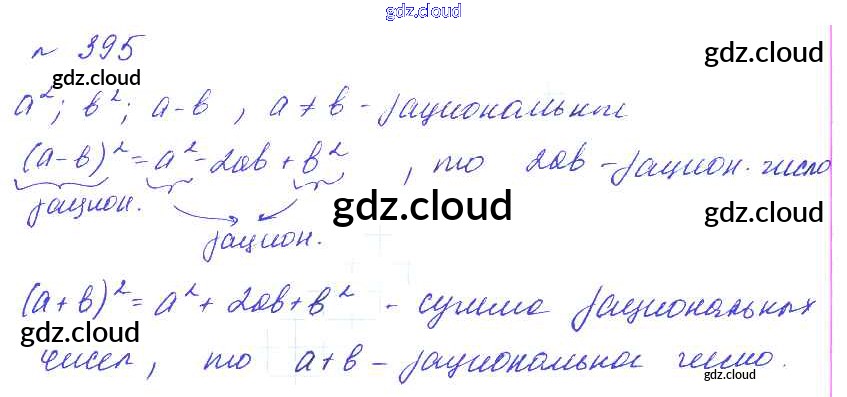 gdz.cloud
№ 395
gdz.cloud
gdz.cloud
a²; b²; a-b, a≠b - рациональные
(a-b)² = a² - 2ab + b², то 2ab - рацион. число
рацион.
gdz.cloud
gdz.cloud
рацион.
(a+b)² = a² + 2ab + b² - сумма рациональных
gdz.cloud
чисел, то a+b - рациональное число.
gdz.cloud